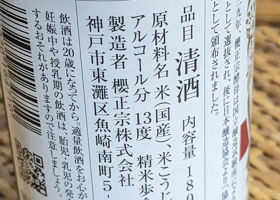 として頒布されました。
品目 清酒 内容量 180
原材料名 米(国産)、米こうじ
アルコール分 13度 精米歩
製造者 櫻正宗株式会社
神戸市東灘区魚崎南町5
飲酒は20歳になってから。適量飲酒をお心が
妊娠中や授乳期の飲酒は、胎児・乳児の発
するおそれがありますので注意しましょう。